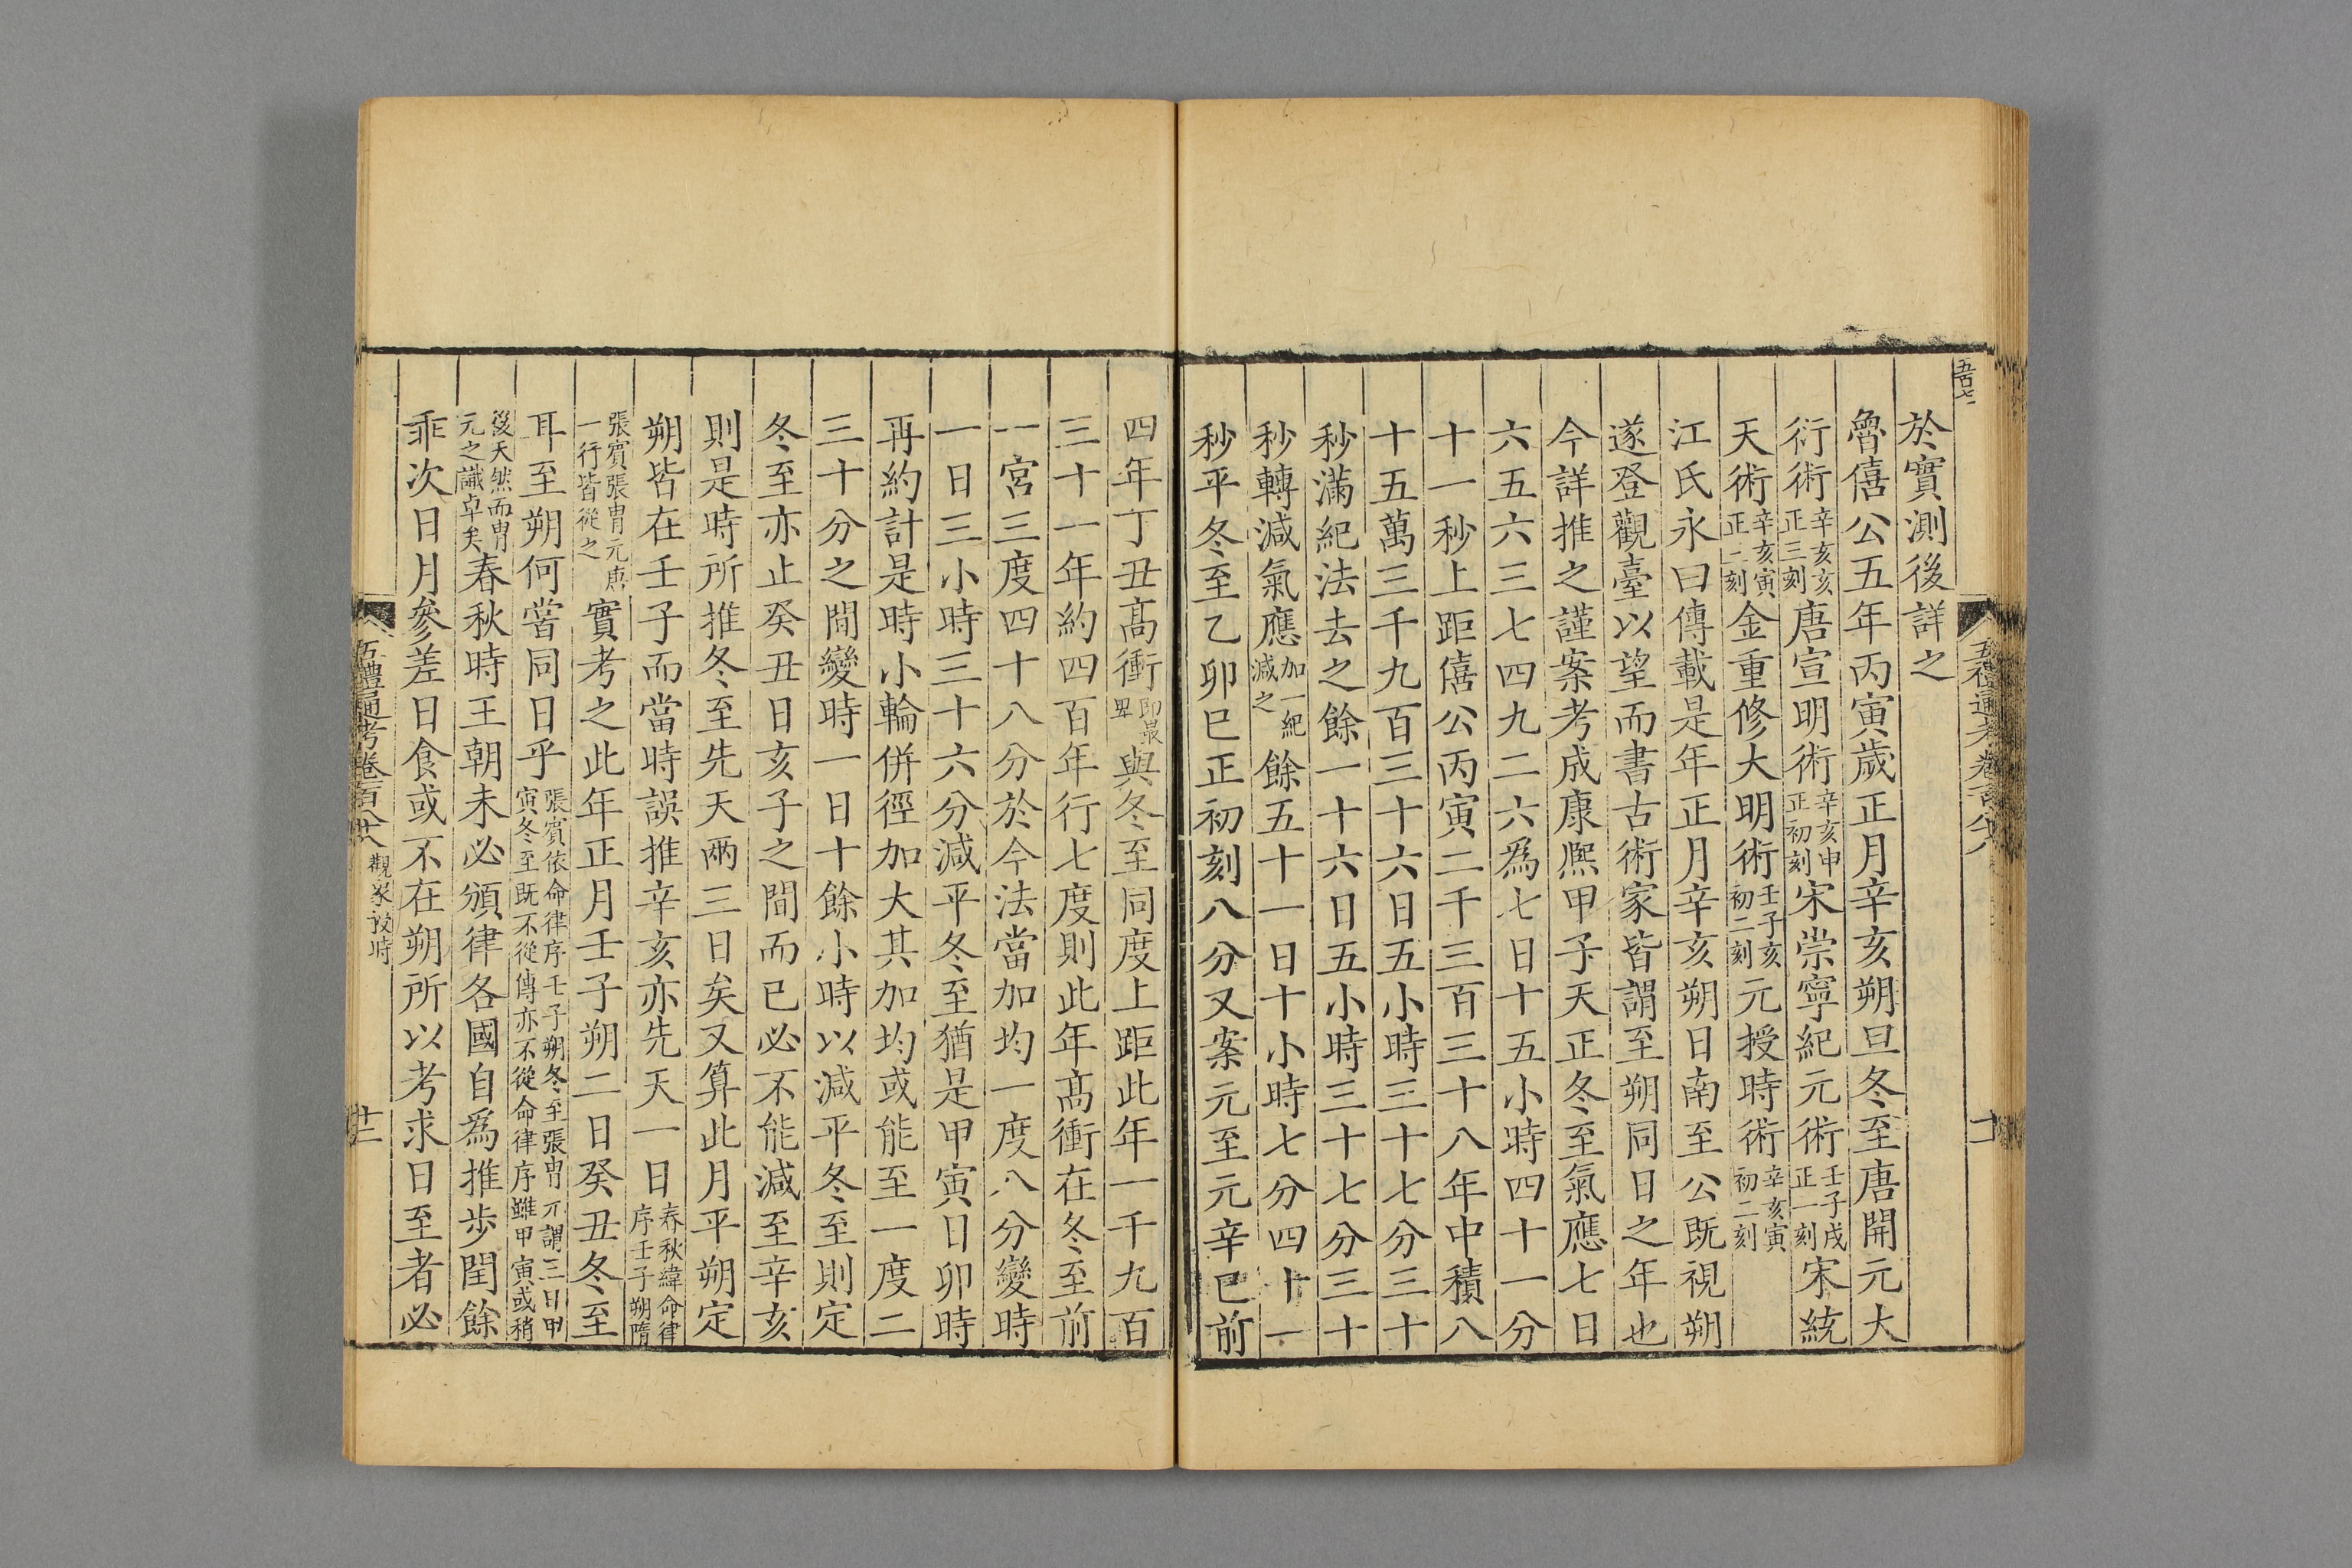 五百七
五禮通考卷一百八十八
十一
於實測後詳之
魯僖公五年丙寅歲正月辛亥朔旦冬至唐開元大
衍術辛亥亥正三刻唐宣明術辛亥申正初刻宋崇寧紀元術壬子戌正一刻宋統
天術辛亥寅正二刻金重修大明術壬子亥初二刻元授時術辛亥寅初二刻
江氏永曰傳載是年正月辛亥朔日南至公既視朔
遂登觀臺以望而書古術家皆謂至朔同日之年也
今詳推之謹案考成康熙甲子天正冬至氣應七日
六五六三七四九二六為七日十五小時四十一分
十一秒上距僖公丙寅二千三百三十八年中積八
十五萬三千九百三十六日五小時三十七分三十
秒滿紀法去之餘一十六日五小時三十七分三十
秒轉減氣應加一紀減之餘五十一日十小時七分四十一
秒平冬至乙卯巳正初刻八分又案元至元辛巳前
四年丁丑髙衝即最卑與冬至同度上距此年一千九百
三十一年約四百年行七度則此年髙衝在冬至前
一宮三度四十八分於今法當加均一度八分變時
一日三小時三十六分減平冬至猶是甲寅日卯時
再約計是時小輪併徑加大其加均或能至一度二
三十分之間變時一日十餘小時以減平冬至則定
冬至亦止癸丑日亥子之間而已必不能減至辛亥
則是時所推冬至先天兩三日矣又算此月平朔定
朔皆在壬子而當時誤推辛亥亦先天一日春秋緯命律序壬子朔隋
張賓張胄元唐一行皆從之實考之此年正月壬子朔二日癸丑冬至
耳至朔何嘗同日乎張賓依命律序壬子朔冬至張胄元謂三日甲寅冬至既不從傳亦不從命律序雖甲寅或稍
後天然而胄元之識卓矣春秋時王朝未必頒律各國自為推步閏餘
乖次日月參差日食或不在朔所以考求日至者必
五禮通考卷一百八十八 觀象授時
十二